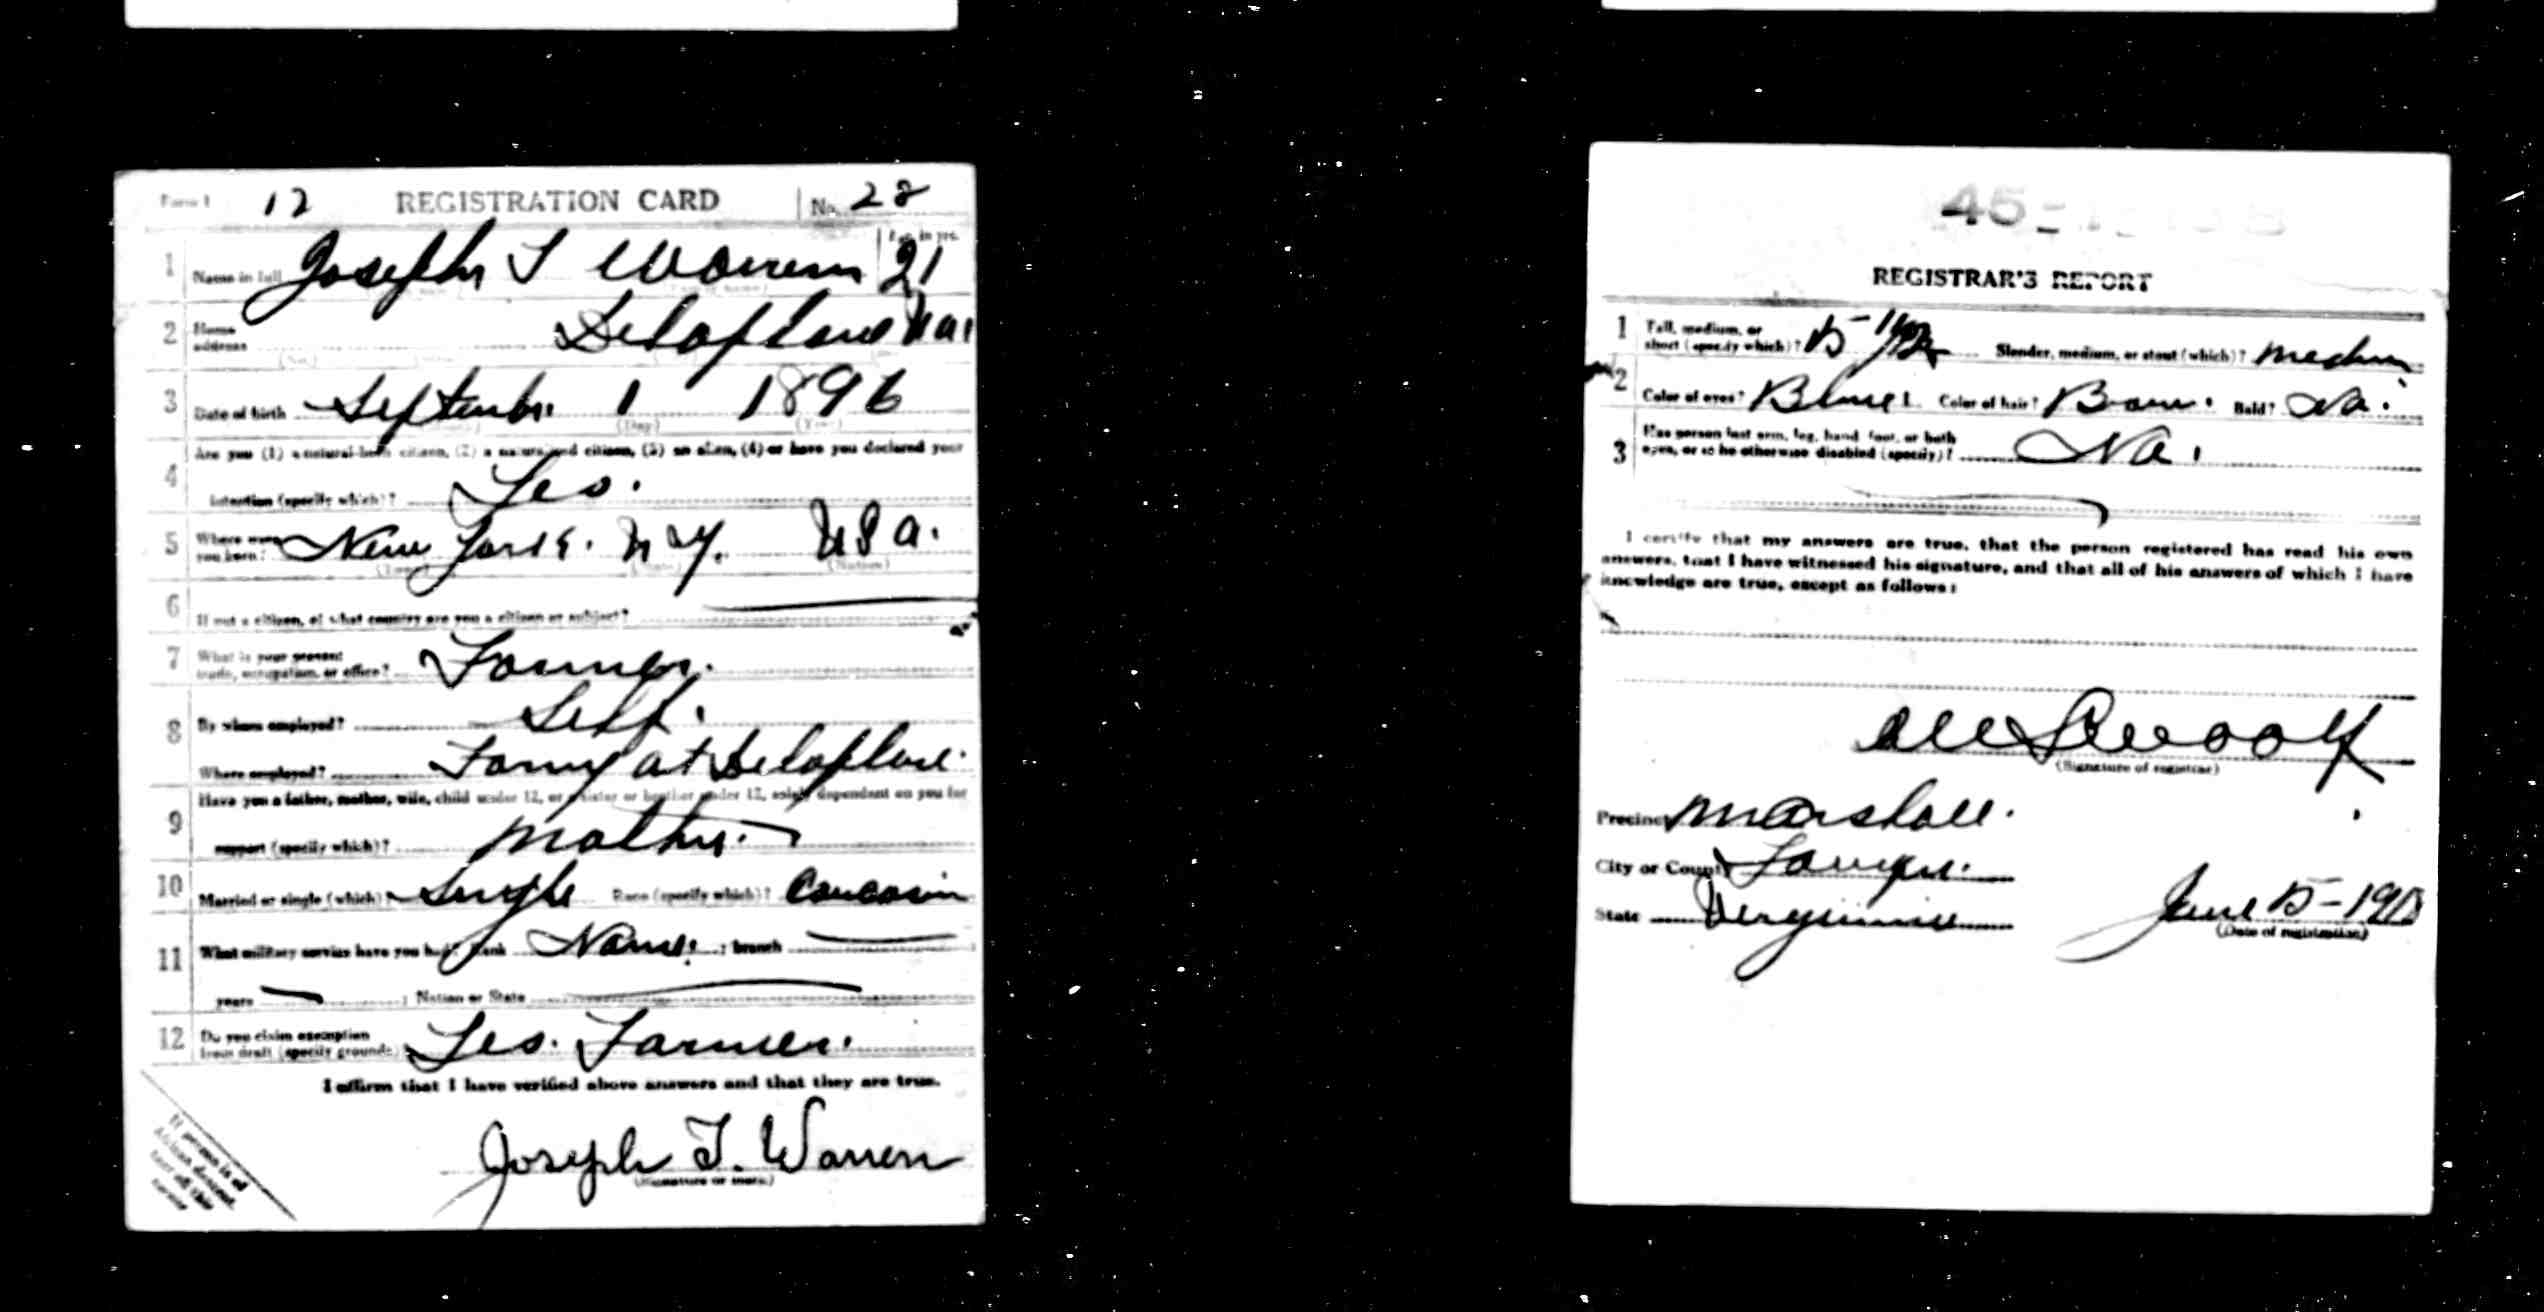 Form 1 12 REGISTRATION CARD No. 28
1 Name in full Joseph T Warren Age in yrs. 21
2 Home address Delaplane Va.
3 Date of birth September 1 1896
(Day) (Year)
4 Are you (1) a natural-born citizen, (2) a naturalized citizen, (3) an alien, (4) or have you declared your
intention (specify which)? Yes.
5 Where were you born? New York. N Y. U S A.
(Town) (State) (Nation)
6 If not a citizen, of what country are you a citizen or subject?
7 What is your present trade, occupation, or office? Farmer.
8 By whom employed? Self.
Where employed? at Delaplane.
9 Have you a father, mother, wife, child under 12, or a sister or brother under 12, solely dependent on you for
support (specify which)? Mother.
10 Married or single (which)? Single Race (specify which)? Caucasin
11 What military service have you had? Rank None. ; branch
years ; Nation or State
12 Do you claim exemption from draft (specify grounds)? Yes. Farmer.
I affirm that I have verified above answers and that they are true.
Joseph T. Warren
(Signature or mark)
If person is of
African descent,
tear off this
corner
45
REGISTRAR'S REPORT
1 Tall, medium, or short (specify which)? Slender, medium, or stout (which)? Medium
2 Color of eyes? Blue. Color of hair? Bown. Bald? No.
3 Has person lost arm, leg, hand, foot, or both eyes, or is he otherwise disabled (specify)? No.
I certify that my answers are true, that the person registered has read his own
answers, that I have witnessed his signature, and that all of his answers of which I have
knowledge are true, except as follows:
(Signature of registrar)
Precinct Marshall.
City or County Fauquier.
State Virginia June 5-191
(Date of registration)